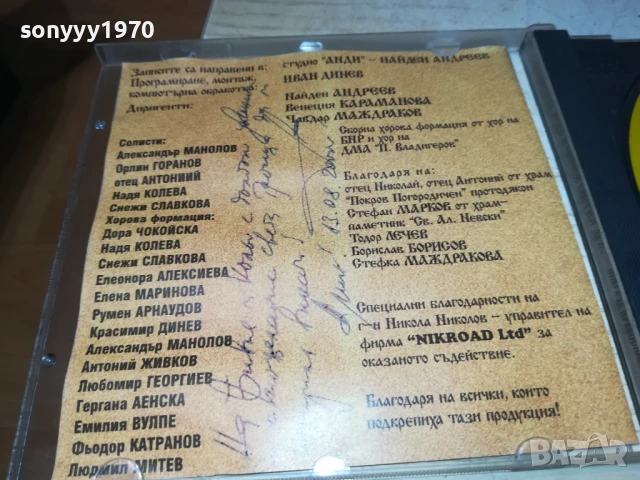 sonyyy1970
Записите са направени в:
студио "АНДИ" – НАЙДЕН АНДРЕЕВ
Програмиране, монтаж,
компютърна обработка:
ИВАН ДИНЕВ
Диригенти:
Найден АНДРЕЕВ
Венеция КАРАМАНОВА
Чавдар МАЖДРАКОВ
Солисти:
Александър МАНОЛОВ
Орлин ГОРАНОВ
отец АНТОНИЙ
Надя КОЛЕВА
Снежи СЛАВКОВА
Хорова формация:
Дора ЧОКОЙСКА
Надя КОЛЕВА
Снежи СЛАВКОВА
Елеонора АЛЕКСИЕВА
Елена МАРИНОВА
Румен АРНАУДОВ
Красимир ДИНЕВ
Александър МАНОЛОВ
Антоний ЖИВКОВ
Любомир ГЕОРГИЕВ
Гергана АЕНСКА
Емилия ВУЛПЕ
Фьодор КАТРАНОВ
Людмил МИТЕВ
Сборна хорова формация от хор на
БНР и хор на
ДМА "П. Владигеров"
Благодаря на:
отец Николай, отец Антоний от храм
"Покров Погородичен" протодякон
Стефан МАРКОВ от храм-
паметник "Св. Ал. Невски"
Тодор ЛЕЧЕВ
Борислав БОРИСОВ
Стефка МАЖДРАКОВА
Специални благодарности на
г-н Никола Николов – управител на
фирма "NIKROAD Ltd" за
оказаното съдействие.
Благодаря на всички, които
подкрепиха тази продукция!
BAZAR